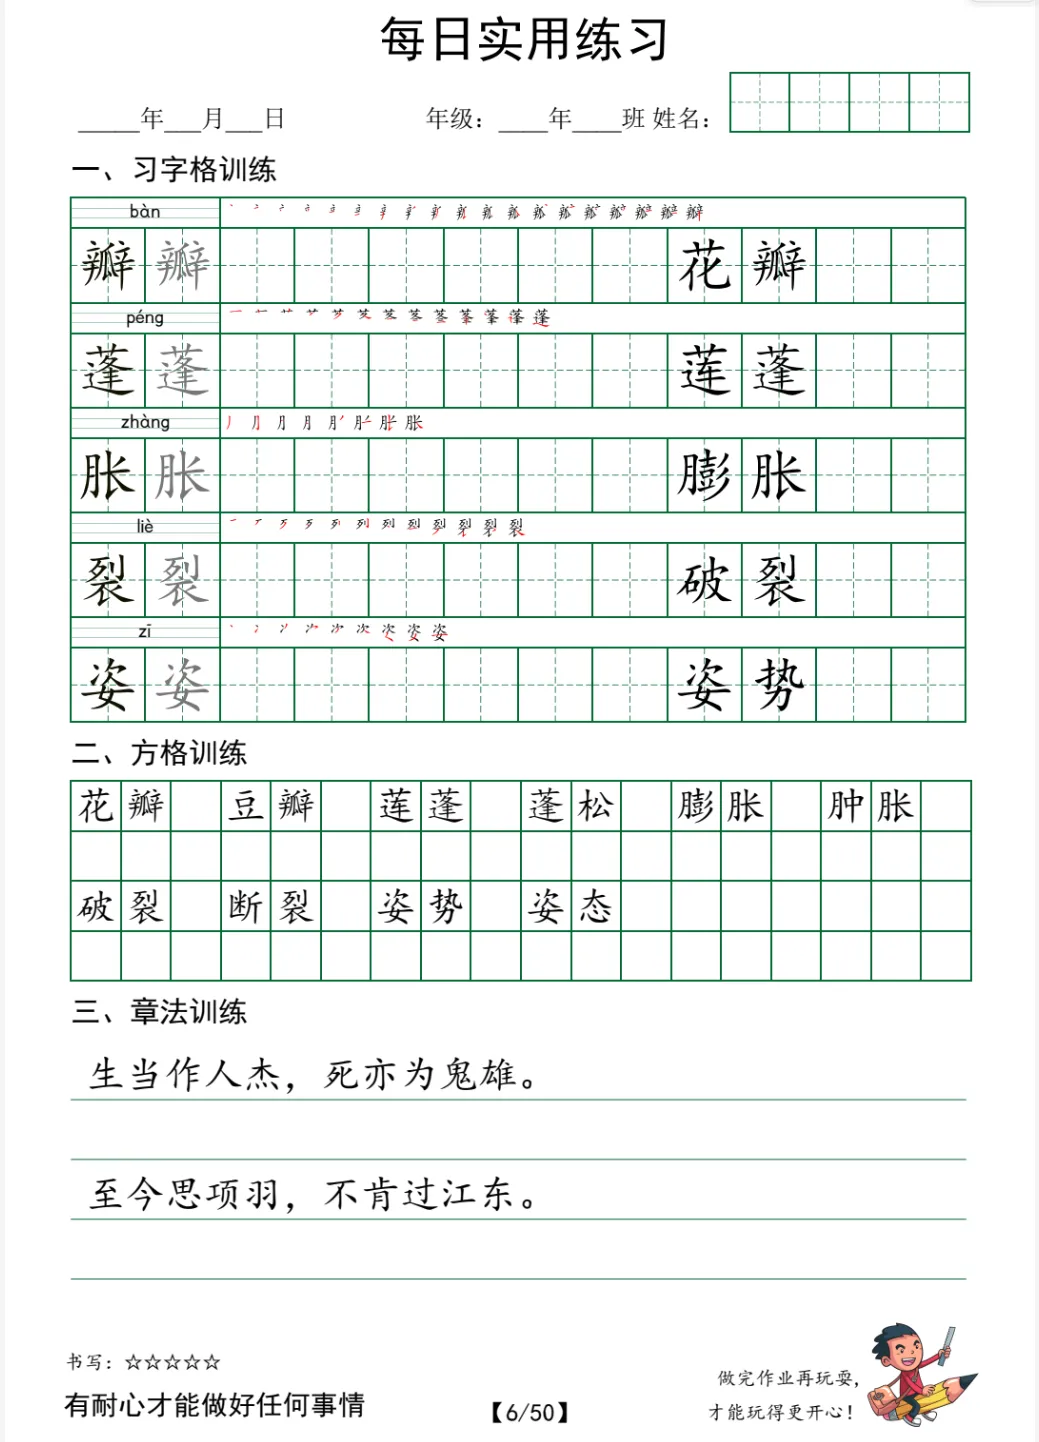 每日实用练习
_____年___月___日 年级：____年____班 姓名：
一、习字格训练
bàn
瓣 瓣 花 瓣
péng
蓬 蓬 莲 蓬
zhàng
胀 胀 膨 胀
liè
裂 裂 破 裂
zī
姿 姿 姿 势
二、方格训练
花瓣 豆瓣 莲蓬 蓬松 膨胀 肿胀
破裂 断裂 姿势 姿态
三、章法训练
生当作人杰，死亦为鬼雄。
至今思项羽，不肯过江东。
书写：☆☆☆☆☆
有耐心才能做好任何事情
【6/50】
做完作业再玩耍，
才能玩得更开心！